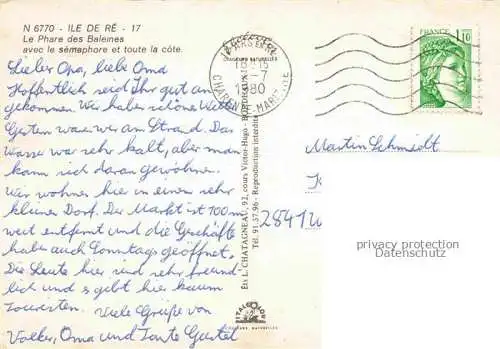 N 6770 - ILE DE RÉ - 17
Le Phare des Baleines
avec le sémaphore et toute la côte.
Lieber Opa, liebe Oma
Hoffentlich seid Ihr gut an
gekommen. Wir haben schönes Wetter
Gestern waren wir am Strand. Das
Wasser war sehr kalt, aber man
kann sich daran gewöhnen.
Wir wohnen hier in einem sehr
kleinen Dorf. Der Markt ist 100m
weit entfernt und die Geschäfte
haben auch Sonntags geöffnet.
Die Leute hier sind sehr freund-
lich und es gibt hier kaum
Touristen. Viele Grüße von
Volker, Oma und Tante Gustel
Ets L. CHATAGNEAU, 92, cours Victor-Hugo - BORDEAUX
Tél. 91-57-96 - Reproduction interdite
COULEURS NATURELLES
18H15
-7
1980
CHARENTE-MARITIME
FRANCE
1,10
Martin Schmidt
2841
privacy protection
Datenschutz